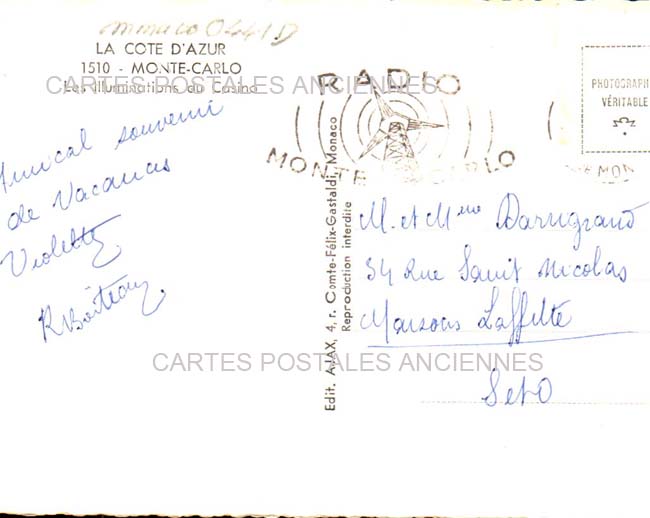 Monaco 0441D
LA COTE D'AZUR
1510 - MONTE-CARLO
Les Illuminations du Casino
CARTES POSTALES ANCIENNES
RADIO
MONTE CARLO
PHOTOGRAPH
VÉRITABLE
MON
Amical souvenir
de Vacances
Violette
Edit. AJAX, 4, r. Comte-Félix-Gastaldi, Monaco
Reproduction interdite
M. et Mme
34 Rue Saint Nicolas
Maisons Laffitte
S et O
CARTES POSTALES ANCIENNES